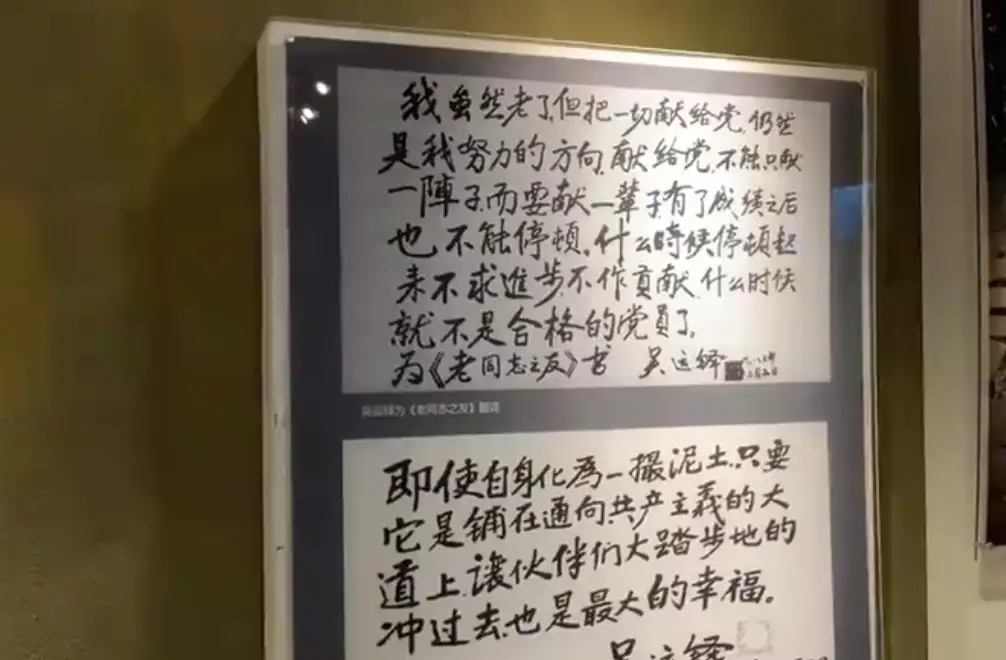 我虽然老了,但把一切献给党,仍然
是我努力的方向,献给党,不能只献
一陣子,而要献一辈子,有了成绩之后
也不能停顿,什么時候停頓起
来不求進步,不作貢献,什么时候
就不是合格的党員了。
为《老同志之友》书 吴运铎
吴运铎为《老同志之友》题词
即使自身化為一撮泥土,只要
它是铺在通向共产主義的大
道上,讓伙伴们大踏步地的
冲过去,也是最大的幸福。
吴运铎